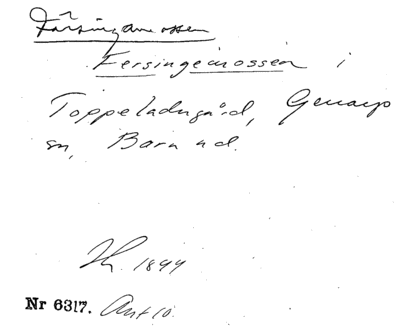 Färsingamossen
Fersingemossen i
Toppeladugård, Genarp
sn, Bara hd.
1899
Nr 6317. Ant 10.